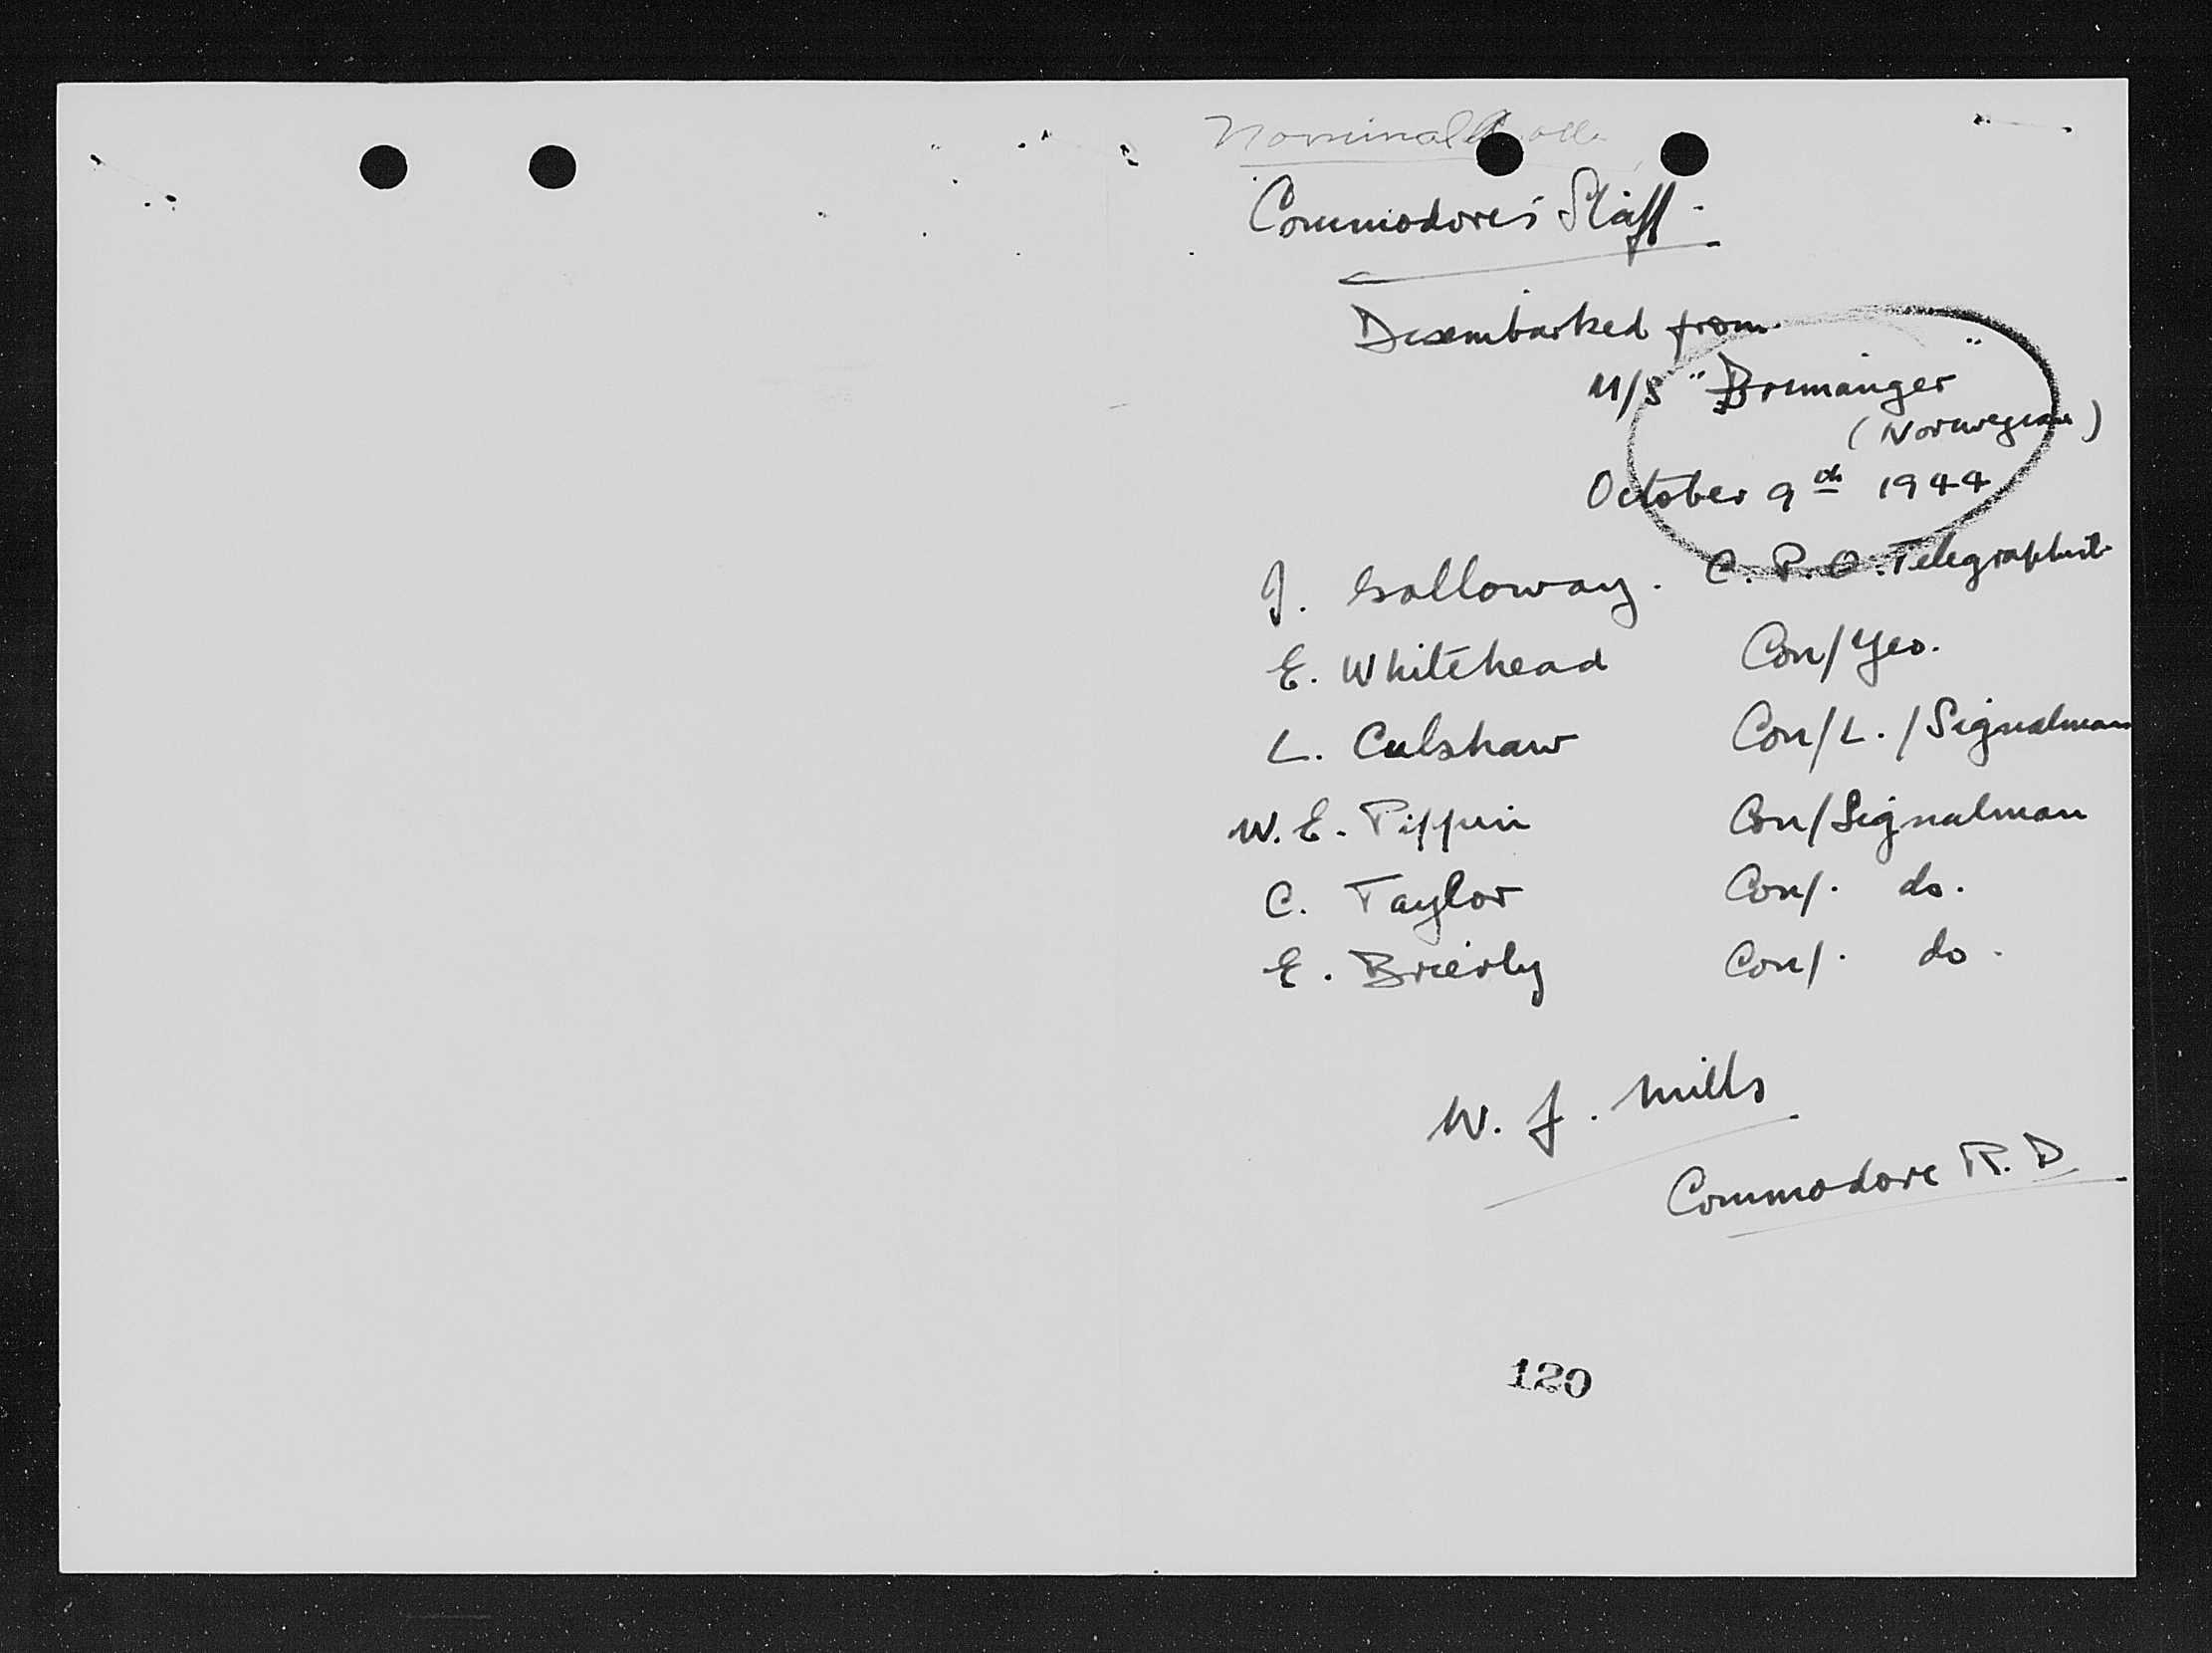 Nominal
Commodore's Staff.
Disembarked from
M/S "Bremanger"
(Norwegian)
October 9th 1944
J. Galloway. C.P.O. Telegraphist.
E. Whitehead Con/Yeo.
L. Culshaw Con/L./Signalman
W. E. Pippin Con/Signalman
C. Taylor Con/. do.
E. Brierly Con/. do.
W. J. Mills
Commodore R.D
120